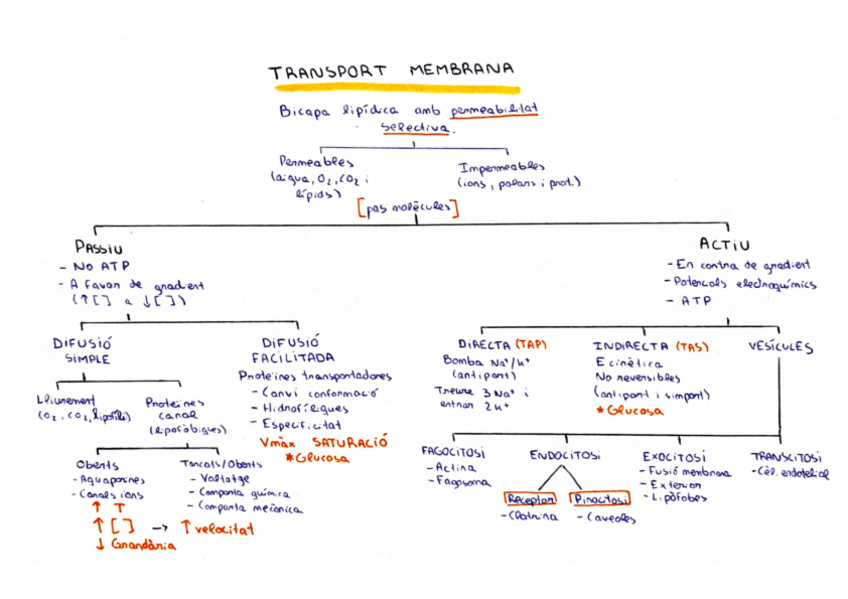 TRANSPORT MEMBRANA
Bicapa lipídica amb permeabilitat
selectiva.
Permeables
(aigua, O2, CO2 i
lípids)
Impermeables
(ions, polars i prot.)
[pas molècules]
PASSIU
- No ATP
- A favor de gradient
(↑[ ] a ↓[ ])
ACTIU
- En contra de gradient
- Potencials electroquímics
- ATP
DIFUSIÓ
SIMPLE
DIFUSIÓ
FACILITADA
Proteïnes transportadores
- Canvi conformació
- Hidrofíliques
- Especificitat
Vmàx SATURACIÓ
*Glucosa
Lliurement
(O2, CO2, lipofíls)
Proteïnes
canal
(lipofòbiques)
Oberts
- Aquaporines
- Canals ions
↑ T
↑ [ ] → ↑ velocitat
↓ Grandària
Tancats/Oberts
- Voltatge
- Comporta química
- Comporta mecànica
DIRECTA (TAP)
Bomba Na+/K+
(antiport)
Treure 3 Na+ i
entrar 2K+
INDIRECTA (TAS)
E cinètica
No reversibles
(antiport i simport)
*Glucosa
VESÍCULES
FAGOCITOSI
- Actina
- Fagosoma
ENDOCITOSI
Receptor
- Clatrina
Pinocitosi
- Caveoles
EXOCITOSI
- Fusió membrana
- Exterior
- Lipòfobes
TRANSCITOSI
- Cèl. endotelial